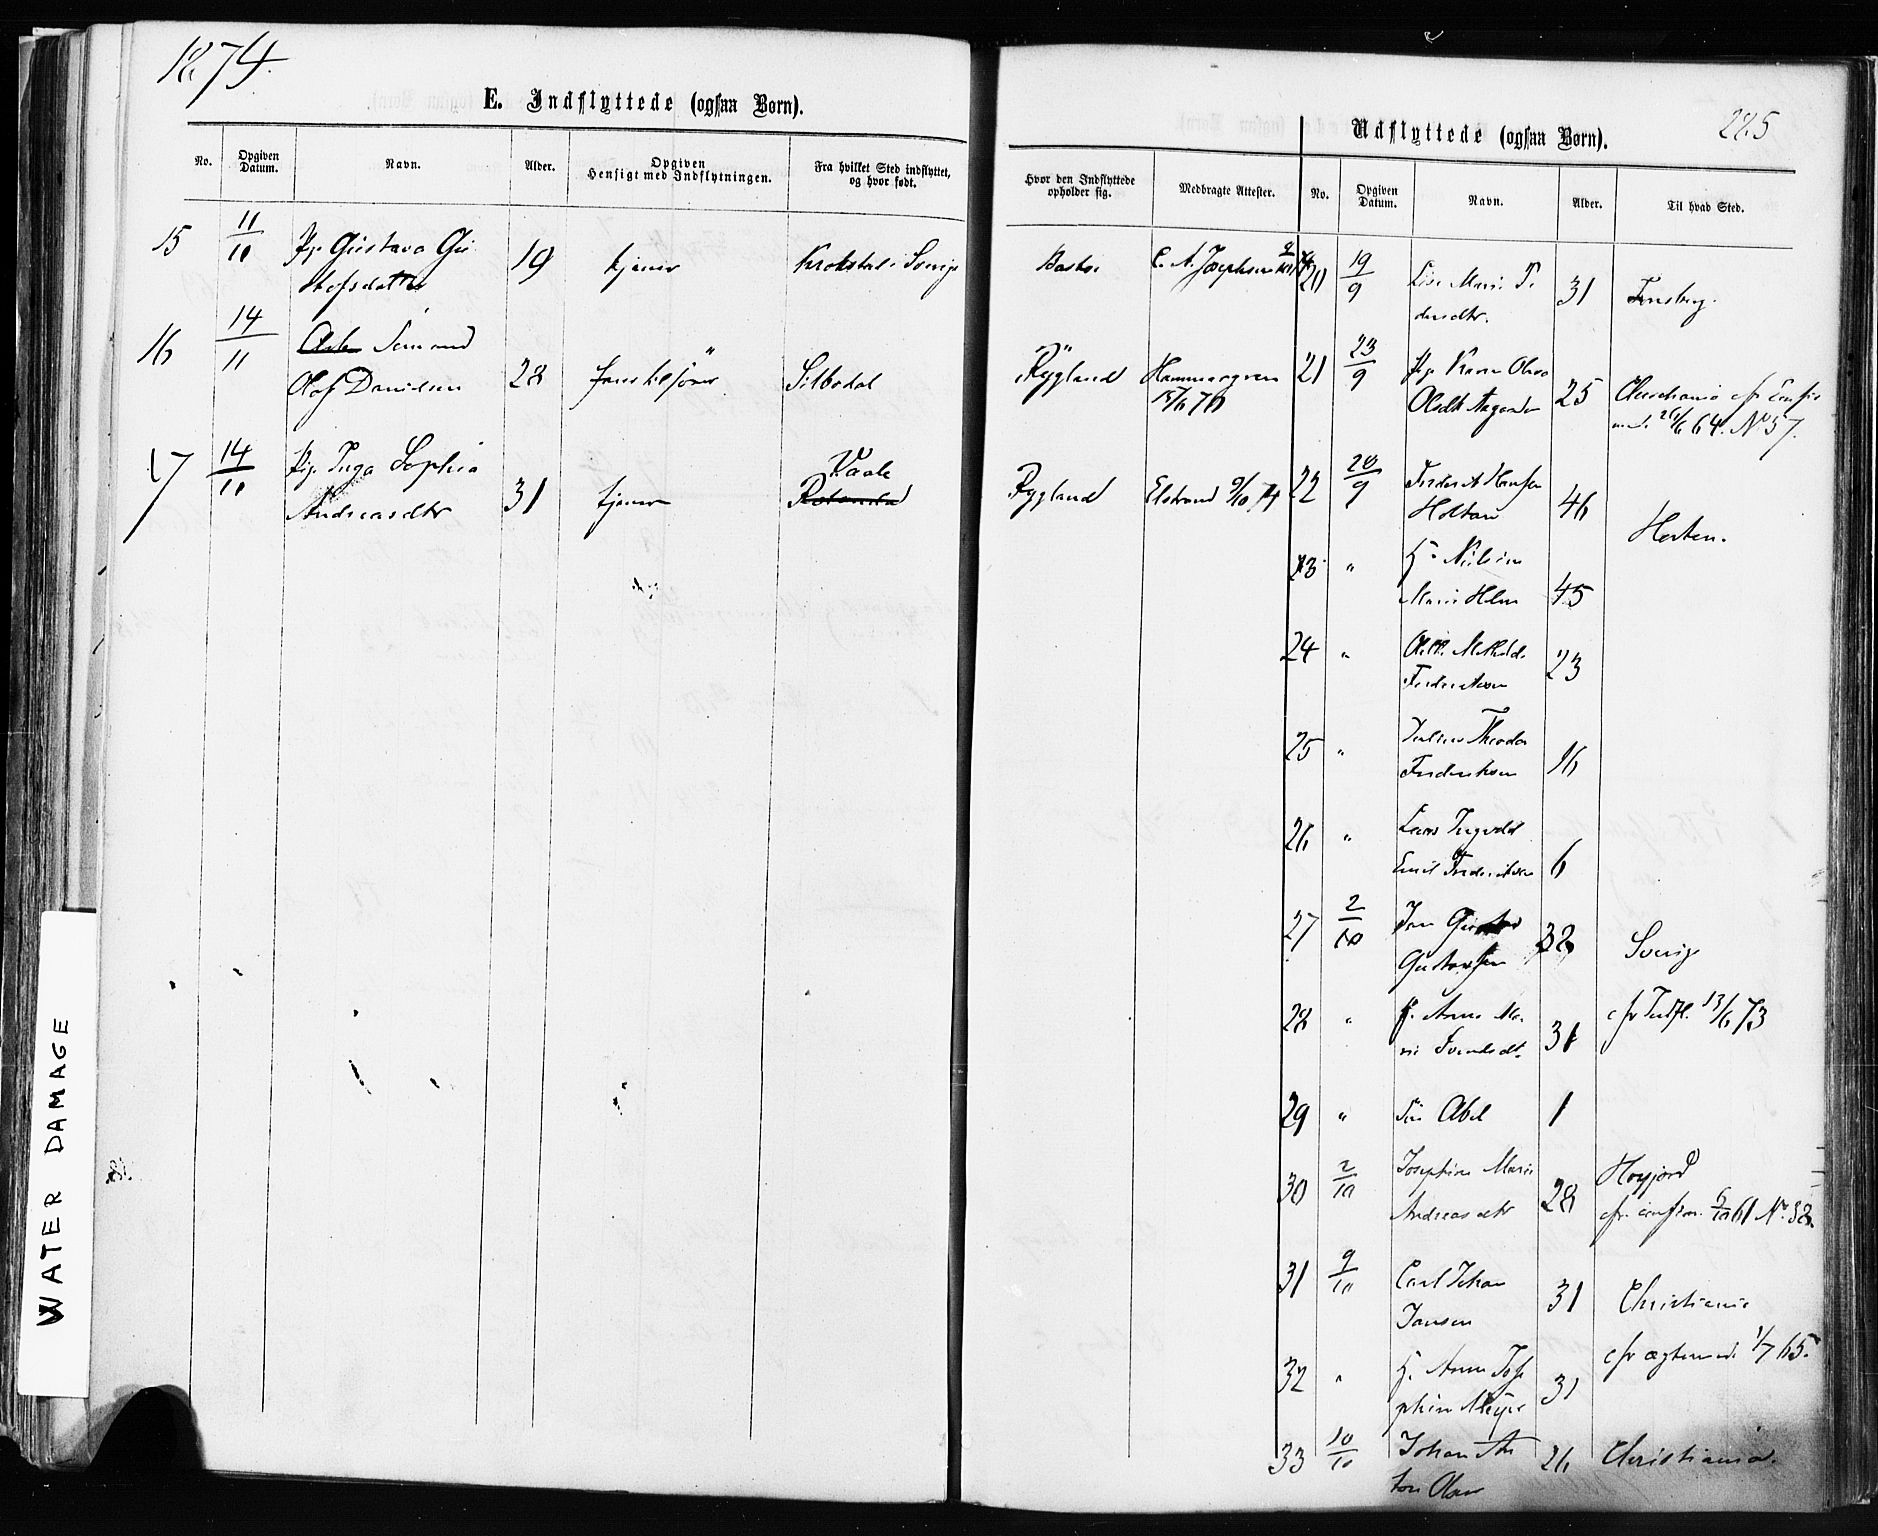 1874.
E. Indflyttede (ogsaa Børn).
No.
Opgiven Datum.
Navn.
Alder.
Opgiven Hensigt med Indflytningen.
Fra hvilket Sted indflyttet, og hvor født.
15 11/10 Pige Gustava Gu
stafsdatter 19 tjener Krokstad i Sverige
16 14/11 Simund
Olof Danielsen 28 Silbodal
17 14/10 Pige Inga Sophia
Andreasdtr 31 tjener Vaale
WATER DAMAGE
Udflyttede (ogsaa Børn).
285
Hvor den Indflyttede opholder sig.
Medbragte Attester.
No.
Opgiven Datum.
Navn.
Alder.
Til hvad Sted.
Bastø C. A. Josephson
20 19/9 Lise Marie Pe
dersdtr. 31 Tønsberg.
Rygland Hammargren
21 23/9 Pige Karen Olava
Olsdtr 25 Christiania cfr Confir
med. 64. No 57.
Rygland Elstrand 9/10 74
22 28/9 Frederik Hansen
Holtan 46 Horten.
23 " H. Nilsine
Marie Helene 45
24 " Mathilde
Frederiksen 23
25 " Julius Theodor
Frederiksen 16
26 " Lars Ingvald
Emil Frederiksen 6
27 2/10 Jan Gustav
Gustavsen 32 Sverige
28 " H. Anne Ma
rie Svendsdtr 31 cfr Indfl. 13/6 73
29 " Abel 1
30 2/10 Josephine Marie
Andreasdtr 28 Høyjord
cfr. confirm. 6/10 61 No. 32.
31 9/10 Carl Johan
Jansen 31 Christiania
cfr ægtevied. 1/7 65.
32 " H. Anne Jose
phine Meyer 31
33 10/10 Johan An
ton Olsen 26 Christiania.